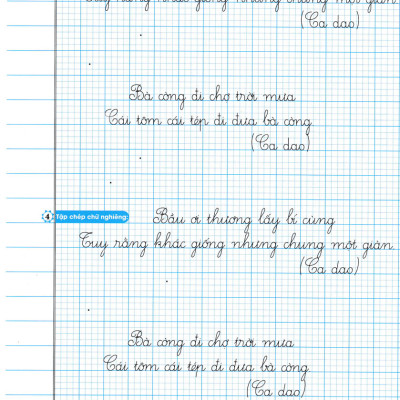 Tuy rằng khác giống nhưng chung một giàn
(Ca dao)
Bà còng đi chợ trời mưa
Cái tôm cái tép đi đưa bà còng
(Ca dao)
4 Tập chép chữ nghiêng:
Bầu ơi thương lấy bí cùng
Tuy rằng khác giống nhưng chung một giàn
(Ca dao)
Bà còng đi chợ trời mưa
Cái tôm cái tép đi đưa bà còng
(Ca dao)